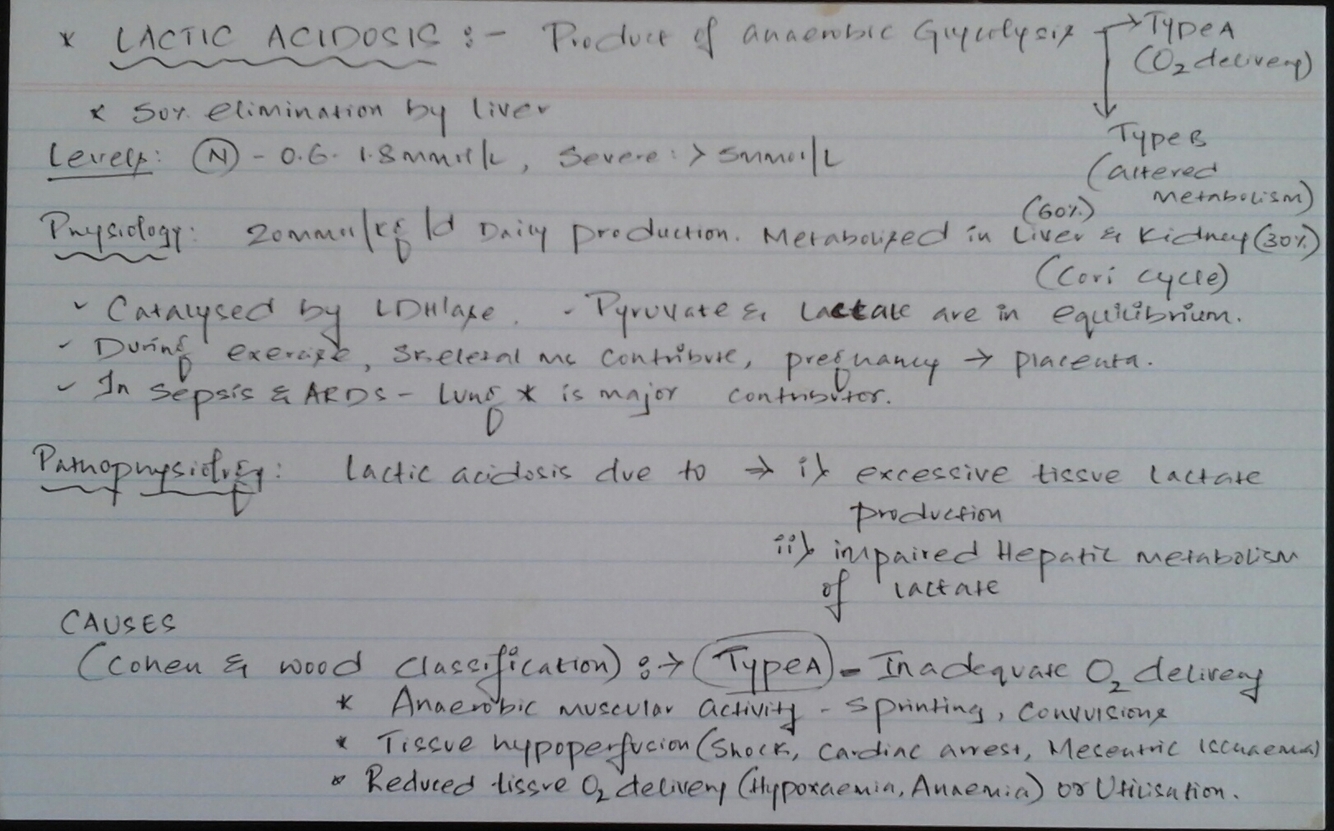 * LACTIC ACIDOSIS :- Product of anaerobic Glycolysis → Type A
(O2 delivery)
* 50% elimination by liver
Type B
(altered
metabolism)
Levels: (N) - 0.6 - 1.8mmol/L, Severe: > 5mmol/L
(60%)
Physiology: 20mmol/kg/d Daily production. Metabolised in Liver & Kidney (30%)
(Cori cycle)
- Catalysed by LDHlase. - Pyruvate & Lactate are in equilibrium.
- During exercise, Skeletal mc contribute, pregnancy → placenta.
- In Sepsis & ARDS - Lung * is major contributor.
Pathophysiology: Lactic acidosis due to ⇒ i) excessive tissue lactate
production
ii) impaired Hepatic metabolism
of lactate
CAUSES
(Cohen & wood classification) :→ (Type A) - Inadequate O2 delivery
* Anaerobic muscular activity - sprinting, convulsions
* Tissue hypoperfusion (Shock, cardiac arrest, Mesentric ischaemia)
* Reduced tissue O2 delivery (Hypoxaemia, Anaemia) or Utilisation.